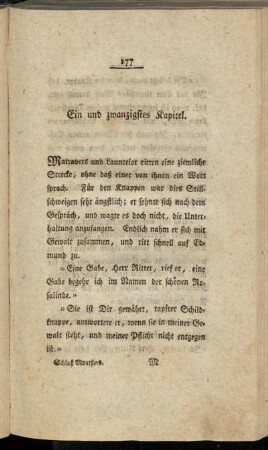 177
Ein und zwanzigstes Kapitel.
Matravers und Launcelot ritten eine ziemliche
Strecke, ohne daß einer von ihnen ein Wort
sprach. Für den Knappen war dies Still-
schweigen sehr ängstlich; er sehnte sich nach dem
Gespräch, und wagte es doch nicht, die Unter-
haltung anzufangen. Endlich nahm er sich mit
Gewalt zusammen, und ritt schnell auf Ed-
mund zu.
» Eine Gabe, Herr Ritter, rief er, eine
Gabe begehr ich im Namen der schönen Ro-
salinde.»
» Sie ist Dir gewährt, tapfrer Schild-
knappe, antwortete er, wenn sie in meiner Ge-
walt steht, und meiner Pflicht nicht entgegen
ist.»
Schloß Montford. M